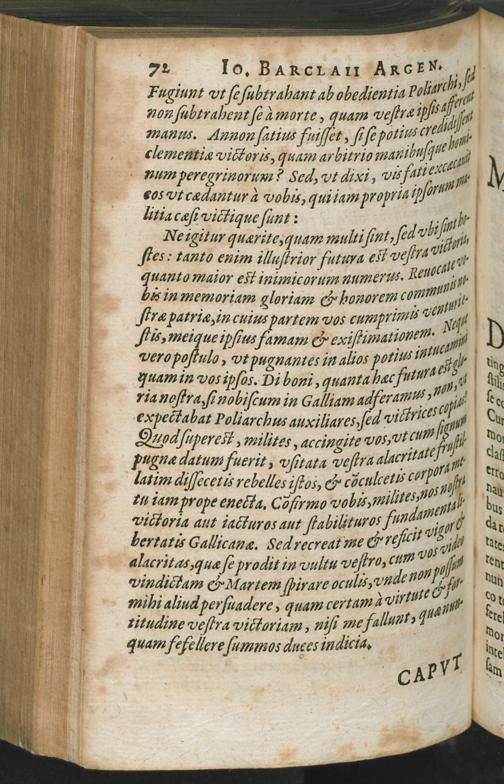 72 IO. BARCLAII ARGEN.
Fugiunt vt se subtrahant ab obedientia Poliarchi, sed
non subtrahent se à morte, quam vestræ ipsis afferent
manus. Annon satius fuisset, si se potius credidissent
clementiæ victoris, quam arbitrio manibusque homi-
num peregrinorum? Sed, vt dixi, vis fati excæcauit
eos vt cædantur à vobis, qui iam propria ipsorum ma-
litia cæsi victique sunt:
Ne igitur quærite, quam multi sint, sed vbi sint ho-
stes: tanto enim illustrior futura est vestra victoria,
quanto maior est inimicorum numerus. Reuocate vo-
bis in memoriam gloriam & honorem communis no-
stræ patriæ, in cuius partem vos cumprimis venturi e-
stis, meique ipsius famam & existimationem. Neque
vero postulo, vt pugnantes in alios potius intucamini
quam in vos ipsos. Di boni, quanta hæc futura est glo-
ria nostra, si nobiscum in Galliam adferamus, non, vt
expectabat Poliarchus auxiliares, sed victrices copias!
Quod superest, milites, accingite vos, vt cum signum
pugnæ datum fuerit, vsitata vestra alacritate frustil-
latim dissecetis rebelles istos, & cōculcetis corpora me-
tu iam prope enecta. Cōfirmo vobis, milites, nos nostra
victoria aut iacturos aut stabilituros fundamenta li-
bertatis Gallicanæ. Sed recreat me & reficit vigor &
alacritas, quæ se prodit in vultu vestro, cum vos video
vindictam & Martem spirare oculis, vnde non possum
mihi aliud persuadere, quam certam à virtute & for-
titudine vestra victoriam, nisi me fallunt, quæ nun-
quam fefellere summos duces indicia.
CAPVT